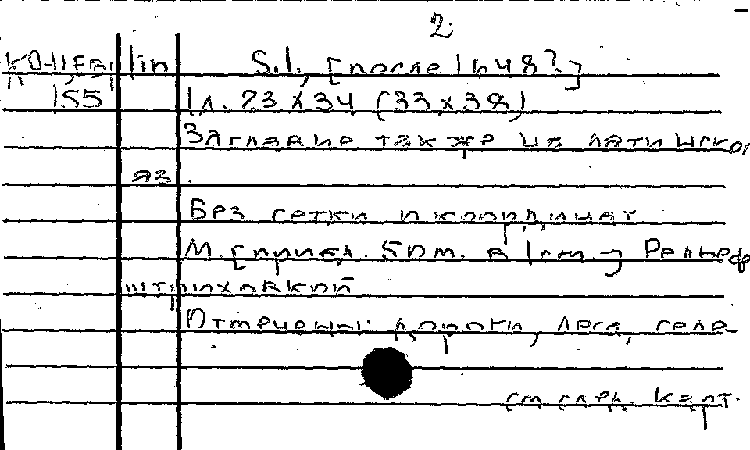 2.
lin S.l., [после 1648?]
155 1 л. 23 x 34 (33 x 38)
Заглавие также на латинском
яз.
Без сетки и координат
М. [прибл. 50 м. в 1 см.] Рельеф
штриховкой
Отмечены дороги, леса, селе-
см след. карт.